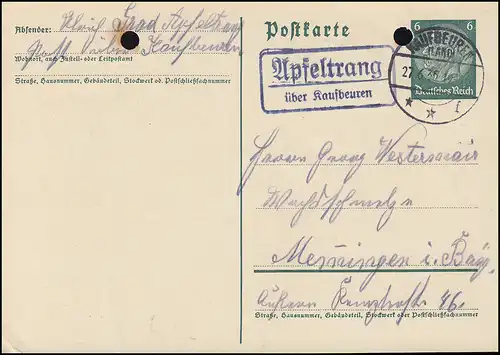 Absender:
Apfeltrang
Post über Kaufbeuren
Wohnort, auch Zustell- oder Leitpostamt
Straße, Hausnummer, Gebäudeteil, Stockwerk od. Postschließfachnummer
Postkarte
6 6
Deutsches Reich
KAUFBEUREN
(LAND)
27
* * f
Apfeltrang
über Kaufbeuren
Herrn Georg Westermair
Memmingen i. Bay.
46.
Straße, Hausnummer, Gebäudeteil, Stockwerk oder Postschließfachnummer